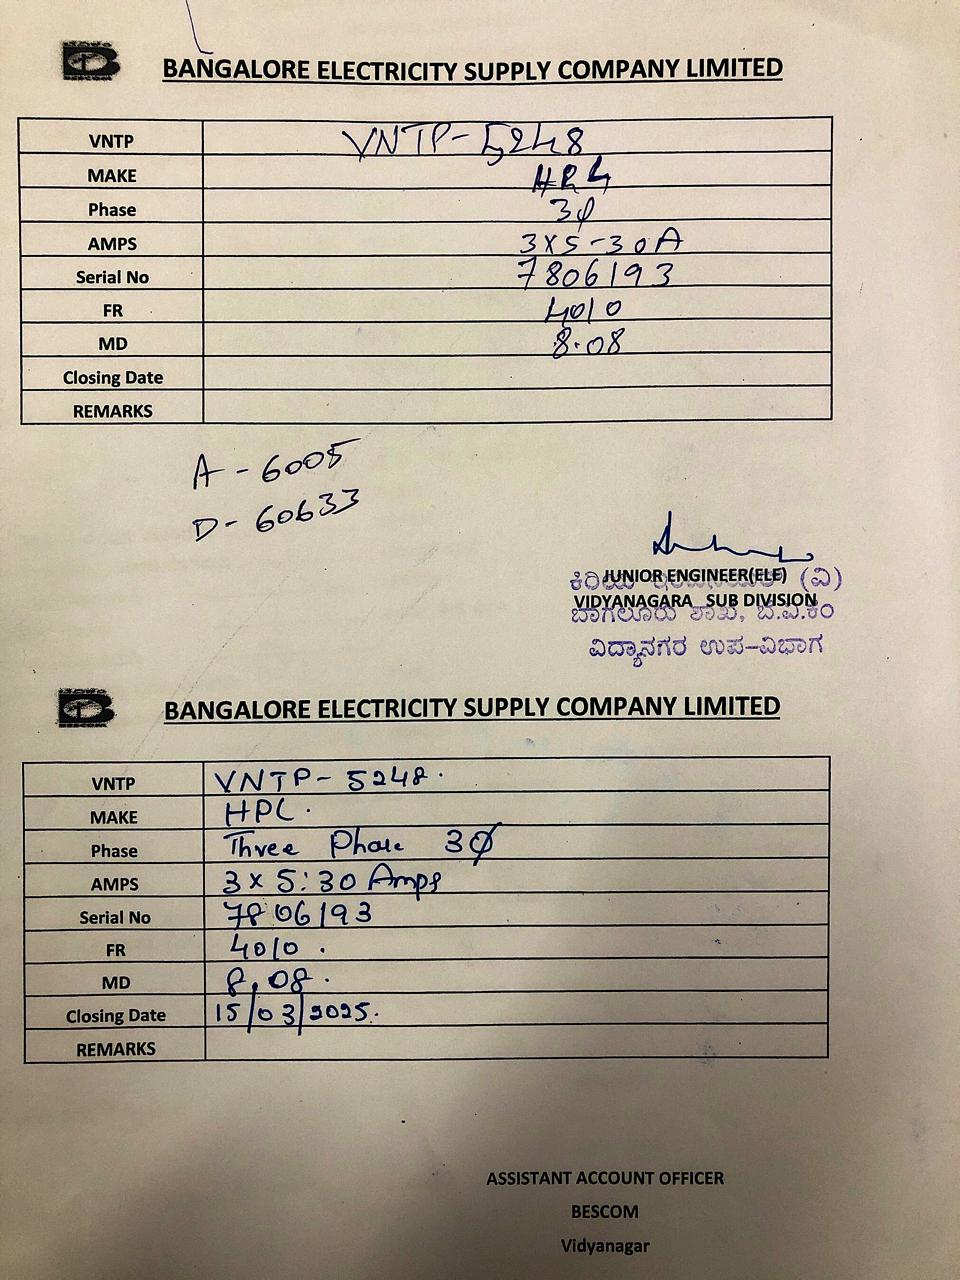 BANGALORE ELECTRICITY SUPPLY COMPANY LIMITED
VNTP VNTP-5248
MAKE
Phase 3φ
AMPS 3X5-30A
Serial No 7806193
FR 4010
MD 8.08
Closing Date
REMARKS
A - 6005
D - 60633
JUNIOR ENGINEER(ELE)
ಕಿರಿಯ (ವಿ)
VIDYANAGARA SUB DIVISION
ಬಾಗಲೂರು ಶಾಖೆ, ಬೆ.ವಿ.ಕಂ
ವಿದ್ಯಾನಗರ ಉಪ-ವಿಭಾಗ
BANGALORE ELECTRICITY SUPPLY COMPANY LIMITED
VNTP VNTP- 5248.
MAKE HPL.
Phase Three Phase 3Ø
AMPS 3 x 5:30 Amps
Serial No 7806193
FR 4010.
MD 8.08.
Closing Date 15/03/2025.
REMARKS
ASSISTANT ACCOUNT OFFICER
BESCOM
Vidyanagar